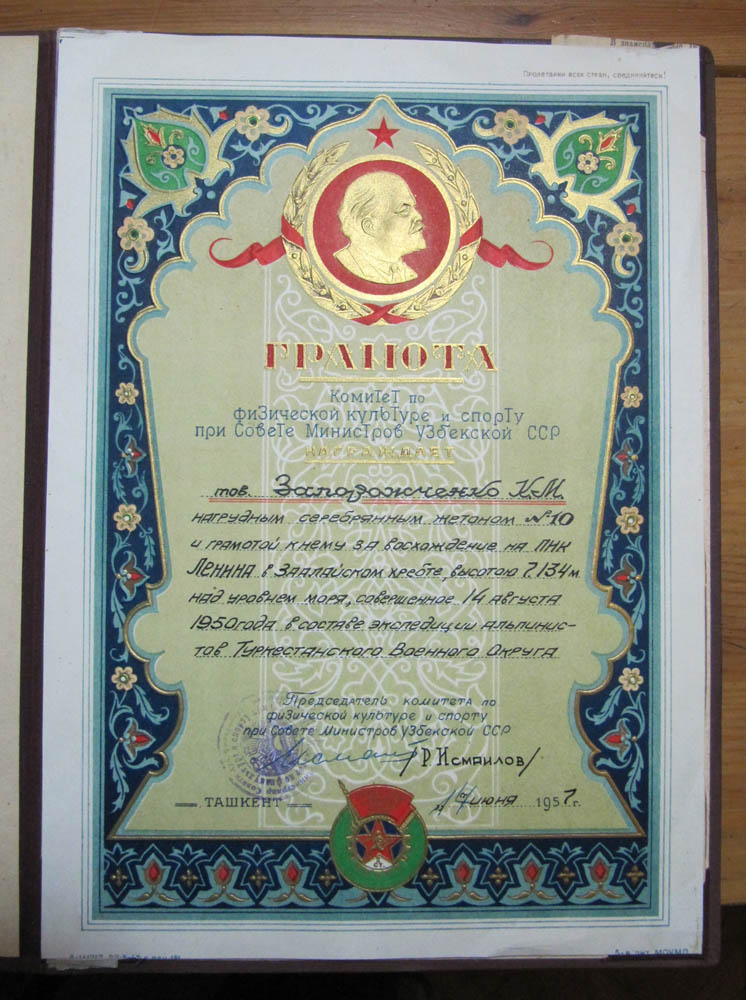 Пролетарии всех стран, соединяйтесь!
ГРАМОТА
Комитет по
физической культуре и спорту
при Совете Министров Узбекской ССР
НАГРАЖДАЕТ
тов. Запорожченко К.М.
нагрудным серебрянным жетоном №10
и грамотой к нему за восхождение на пик
Ленина в Заалайском хребте, высотою 7.134 м
над уровнем моря, совершенное 14 августа
1950 года в составе экспедиции альпинис-
тов Туркестанского Военного Округа
Председатель комитета по
физической культуре и спорту
при Совете Министров Узбекской ССР
/Р. Исмаилов/
ТАШКЕНТ
июня 1957 г.